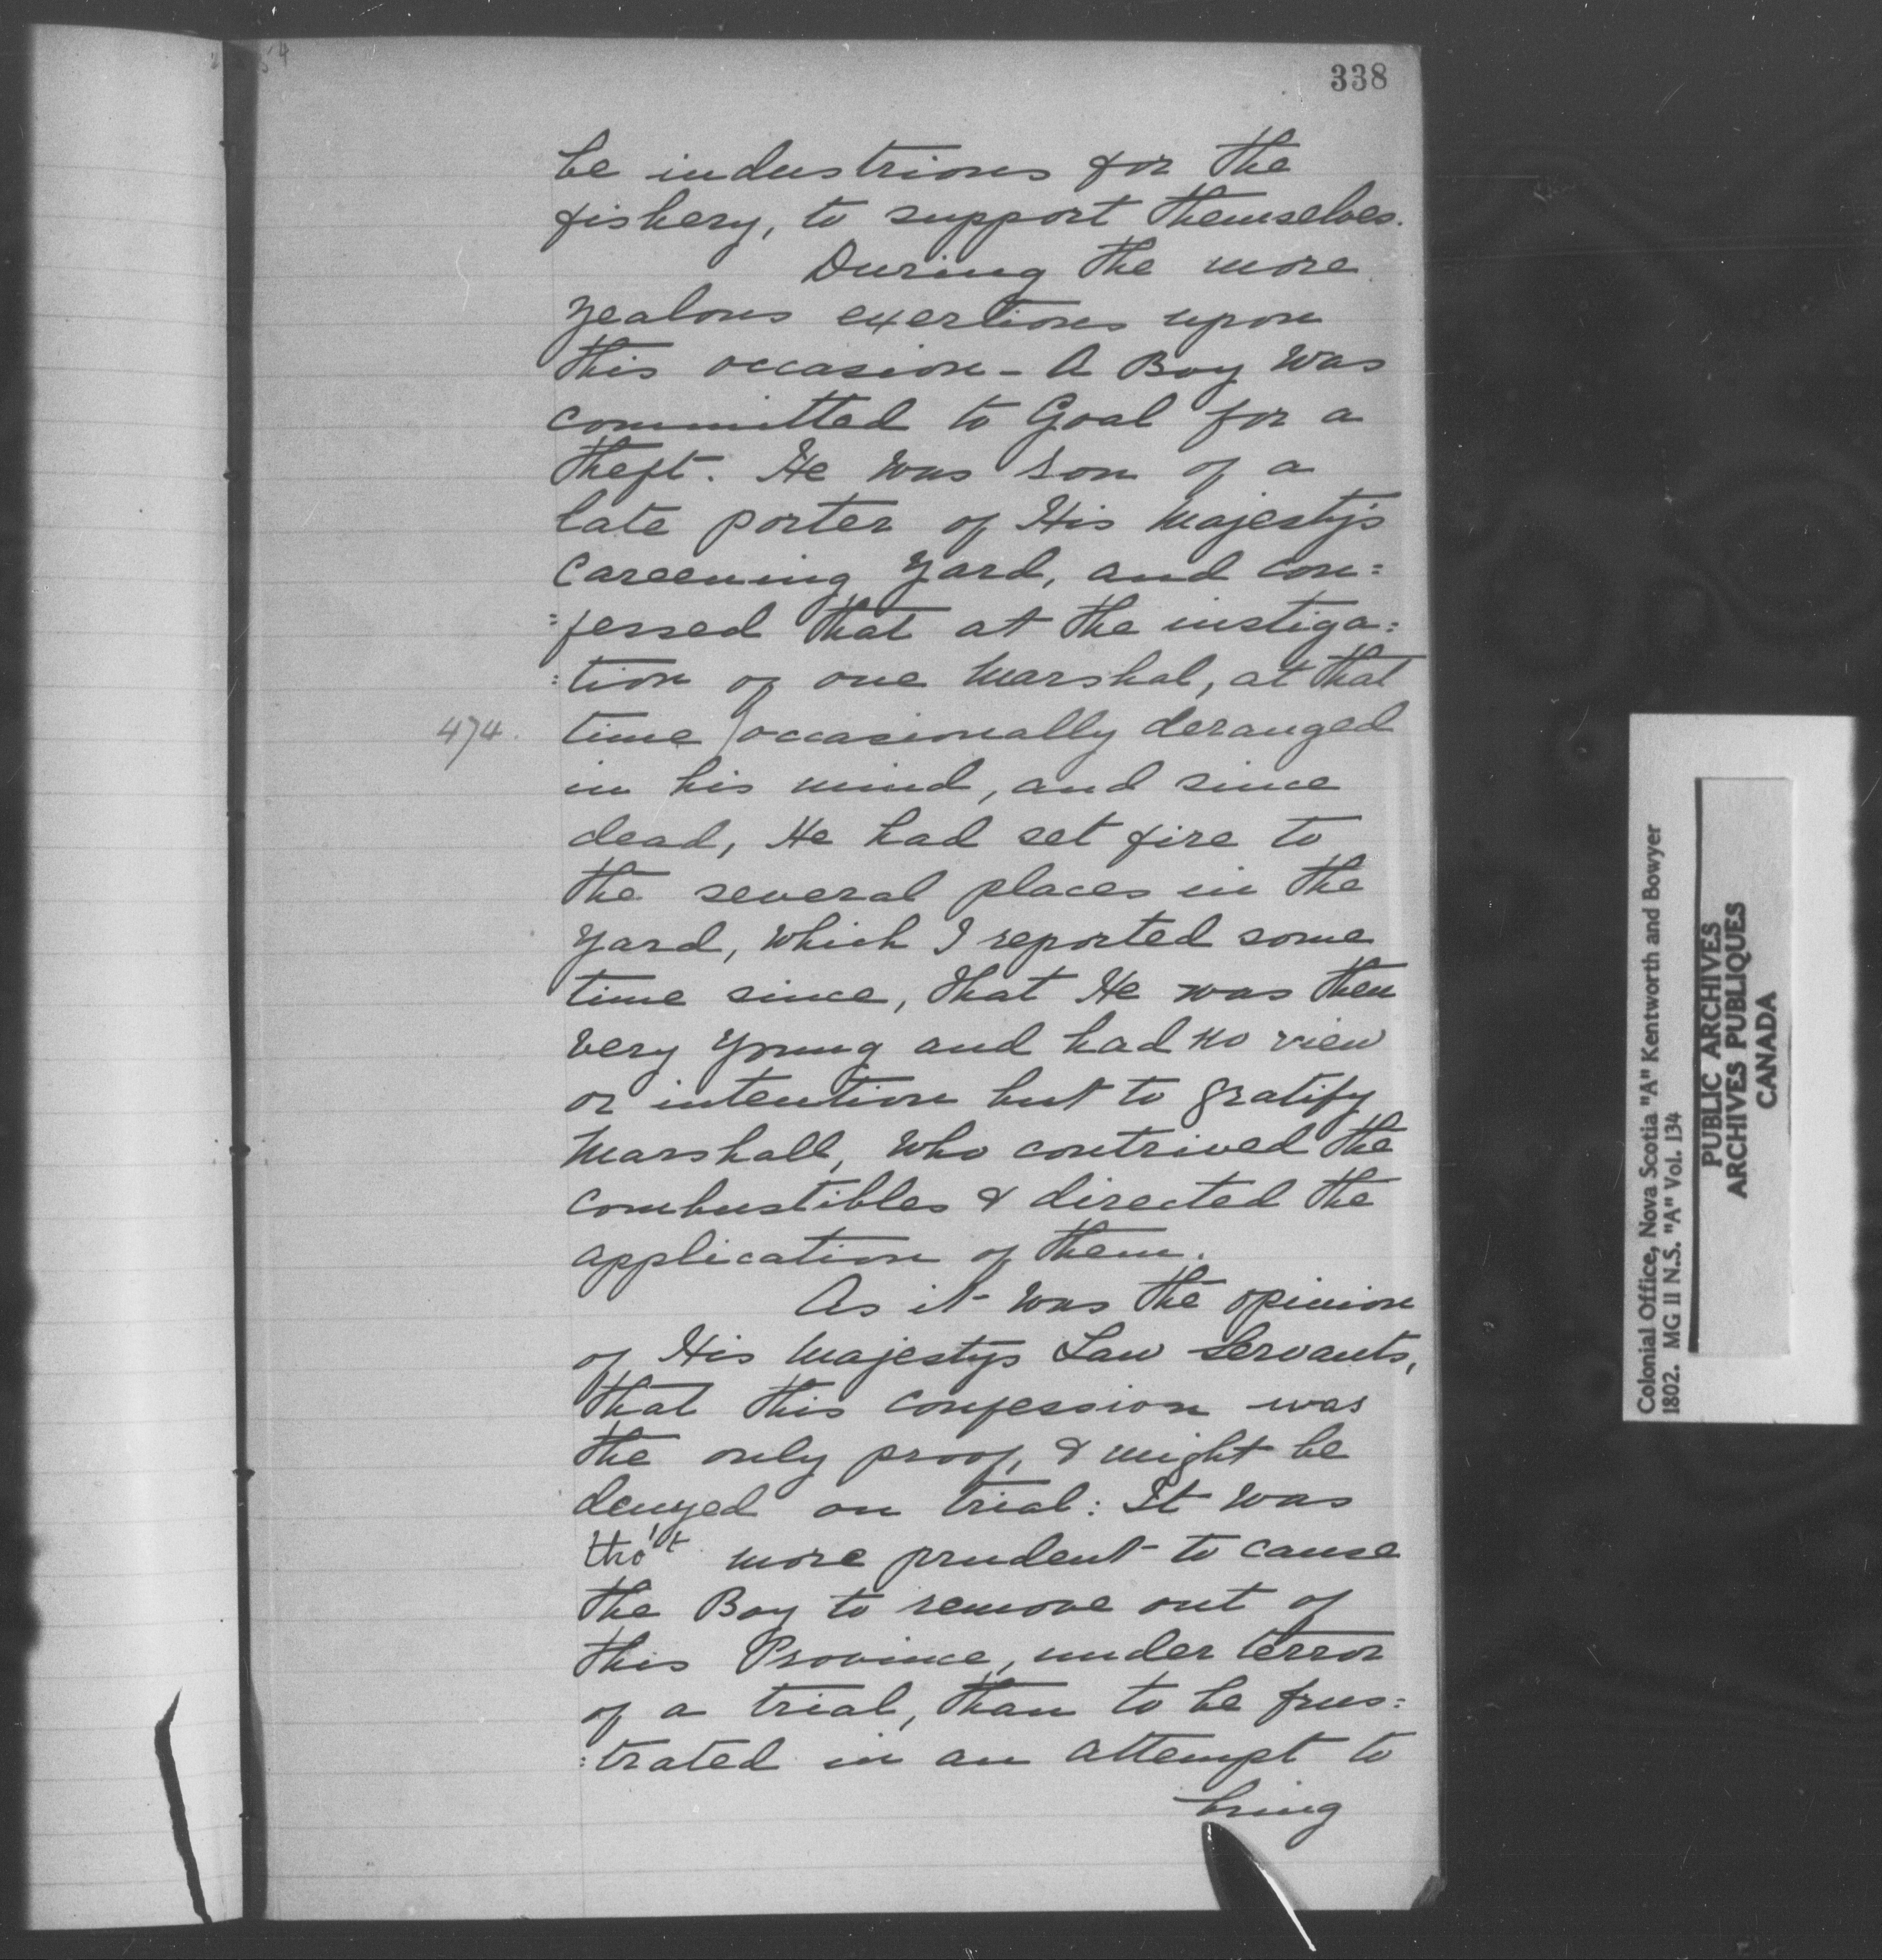 338
be industrious for the
fishery, to support themselves.
During the more
zealous exertions upon
this occasion - A Boy was
committed to Goal for a
theft. He was son of a
late porter of His Majesty's
Careening Yard, and con=
=fessed that at the instiga=
=tion of one Marshal, at that
474. time / occasionally deranged
in his mind, and since
dead, He had set fire to
the several places in the
Yard, which I reported some
time since, that He was then
very young and had no view
or intention but to gratify
Marshall, who contrived the
combustibles & directed the
application of them.
As it was the opinion
of His Majestys Law Servants,
that this confession was
the only proof, & might be
denyed on trial: It was
tho't more prudent to cause
the Boy to remove out of
this Province, under terror
of a trial, than to be frus=
=trated in an attempt to
bring
Colonial Office, Nova Scotia "A" Kentworth and Bowyer
1802. MG 11 N.S. "A" Vol. 134
PUBLIC ARCHIVES
ARCHIVES PUBLIQUES
CANADA